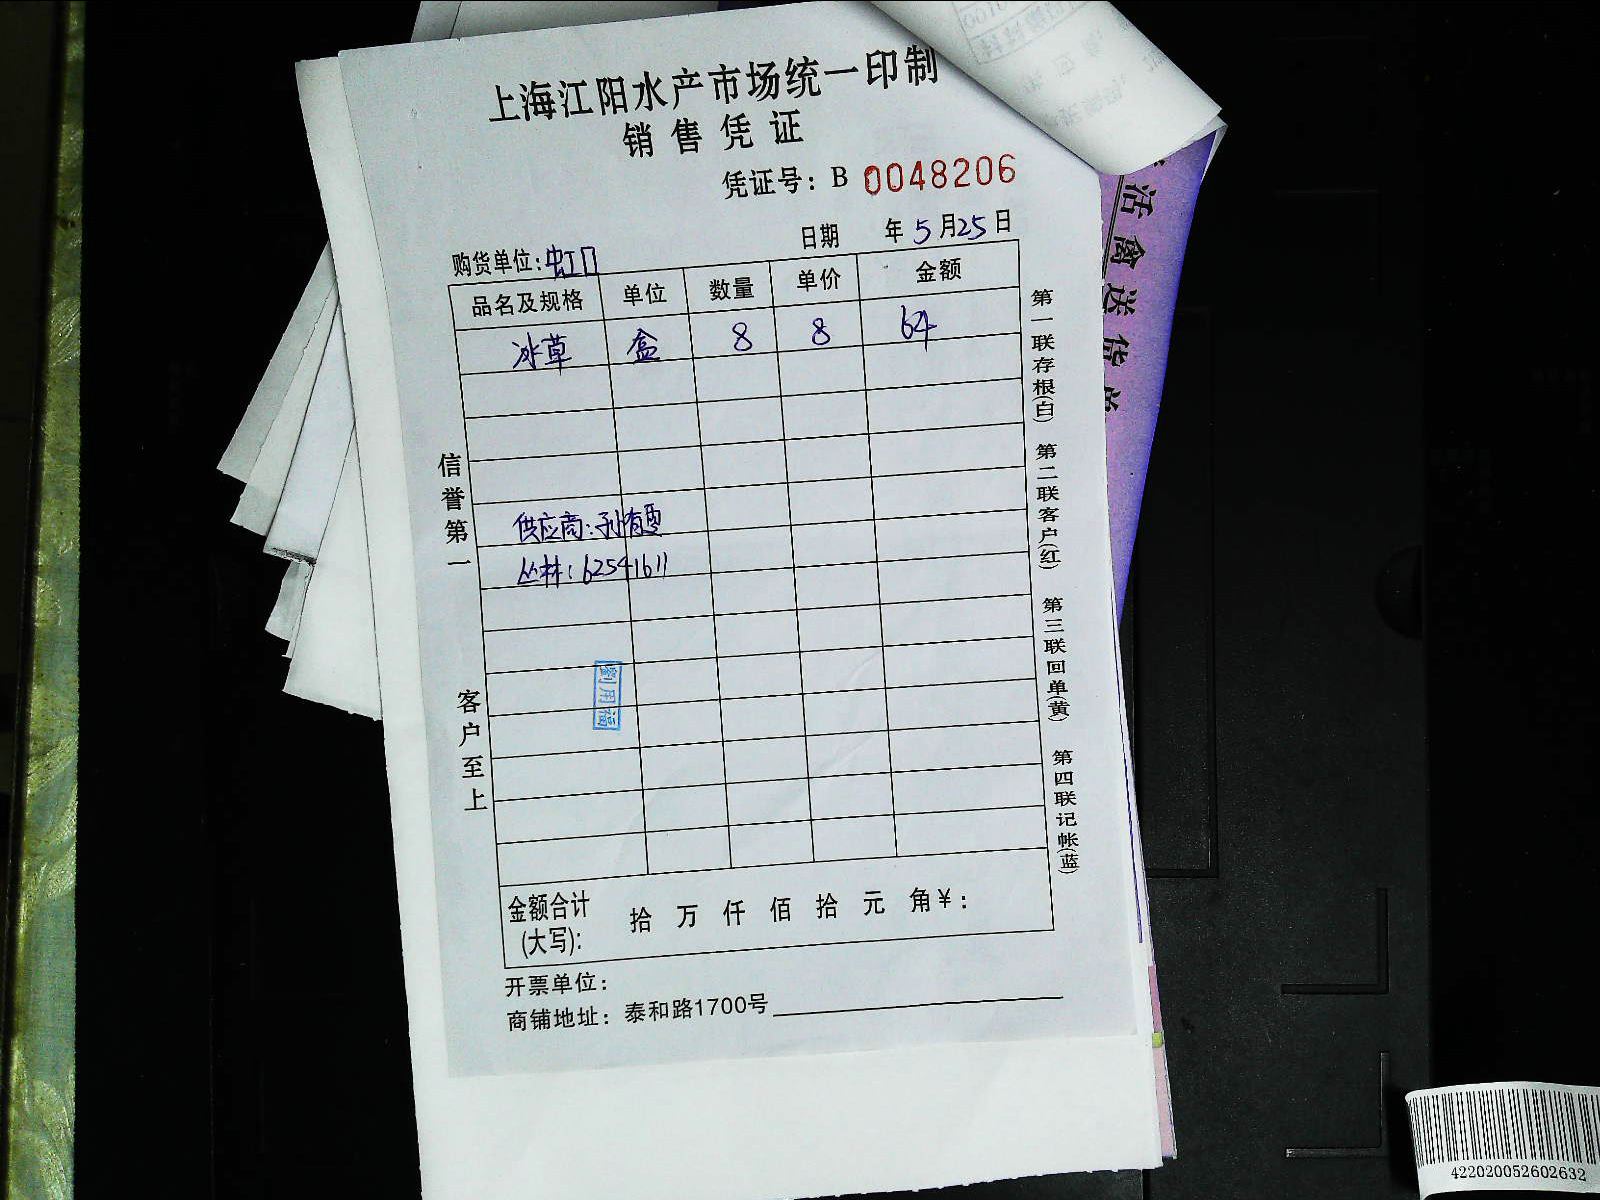 上海江阳水产市场统一印制
销售凭证
凭证号：B 0048206
日期 年5月25日
购货单位：虹口
品名及规格 单位 数量 单价 金额
冰草 盒 8 8 64
供应商：孙有雯
丛林：62541611
信誉第一
客户至上
劉用福
第一联存根(白) 第二联客户(红) 第三联回单(黄) 第四联记帐(蓝)
金额合计(大写)： 拾 万 仟 佰 拾 元 角¥：
开票单位：
商铺地址：泰和路1700号
活禽送货单
422020052602632